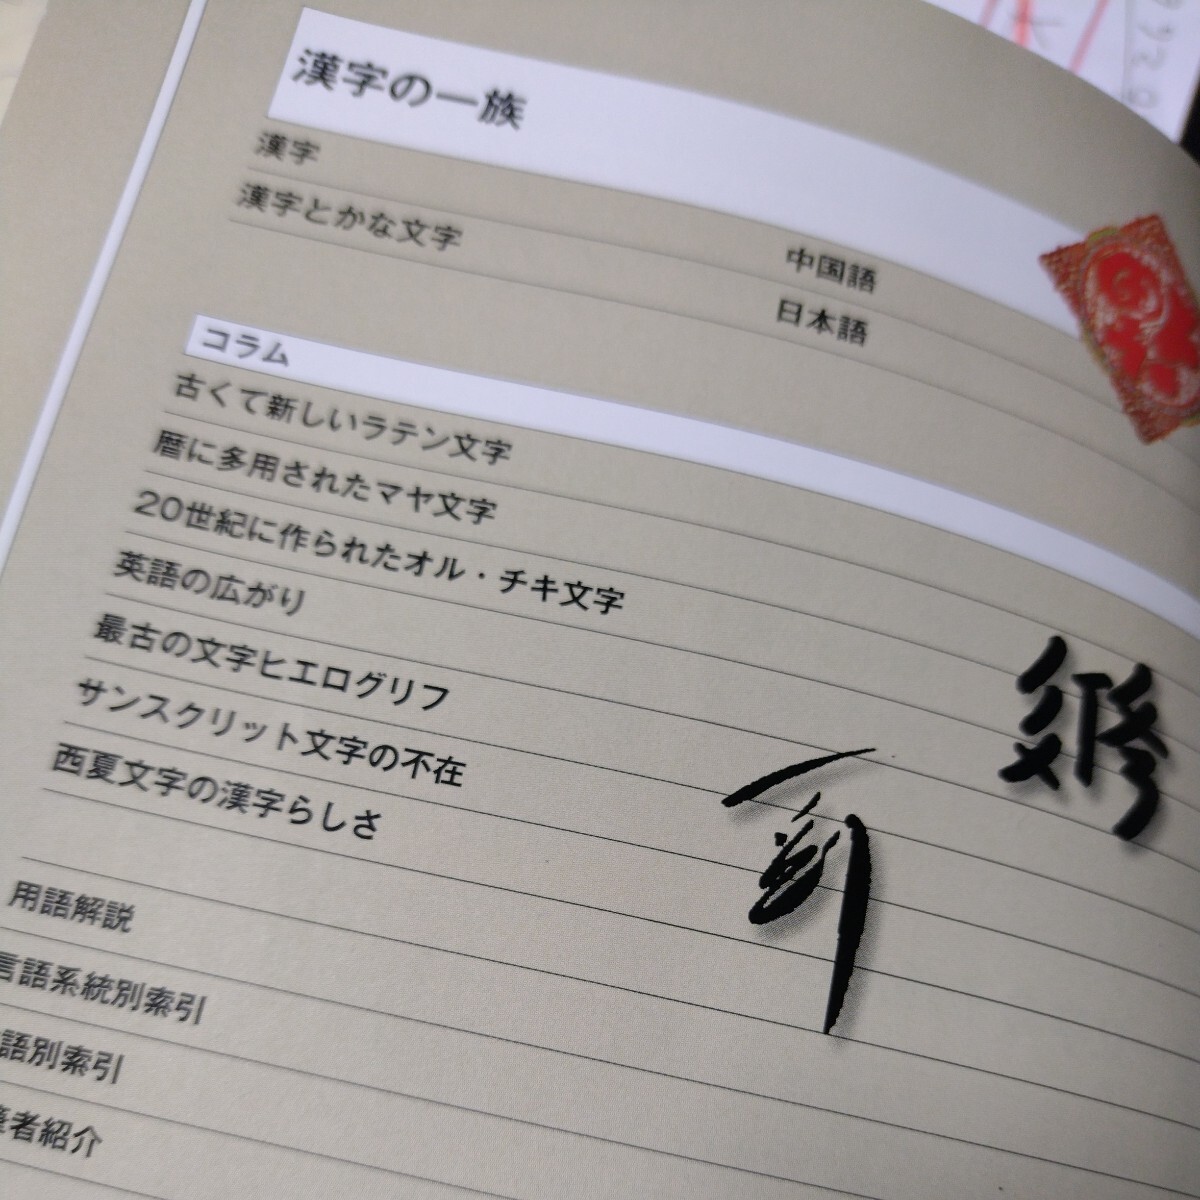 漢字の一族
漢字 中国語
漢字とかな文字 日本語
コラム
古くて新しいラテン文字
暦に多用されたマヤ文字
20世紀に作られたオル・チキ文字
英語の広がり
最古の文字ヒエログリフ
サンスクリット文字の不在
西夏文字の漢字らしさ
用語解説
言語系統別索引
語別索引
者紹介